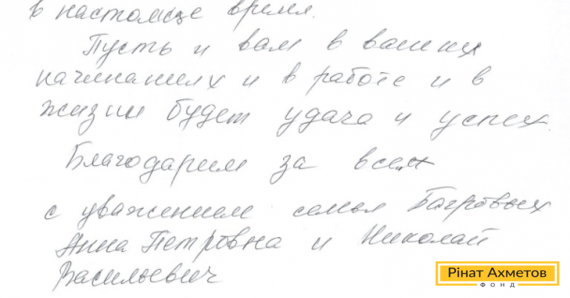 в настоящее время.
Пусть и вам в ваших
начинаниях и в работе и в
жизни будет удача и успех
Благодарим за всем
с уважением семья Багровых
Анна Петровна и Николай
Васильевич
Рінат Ахметов
ФОНД